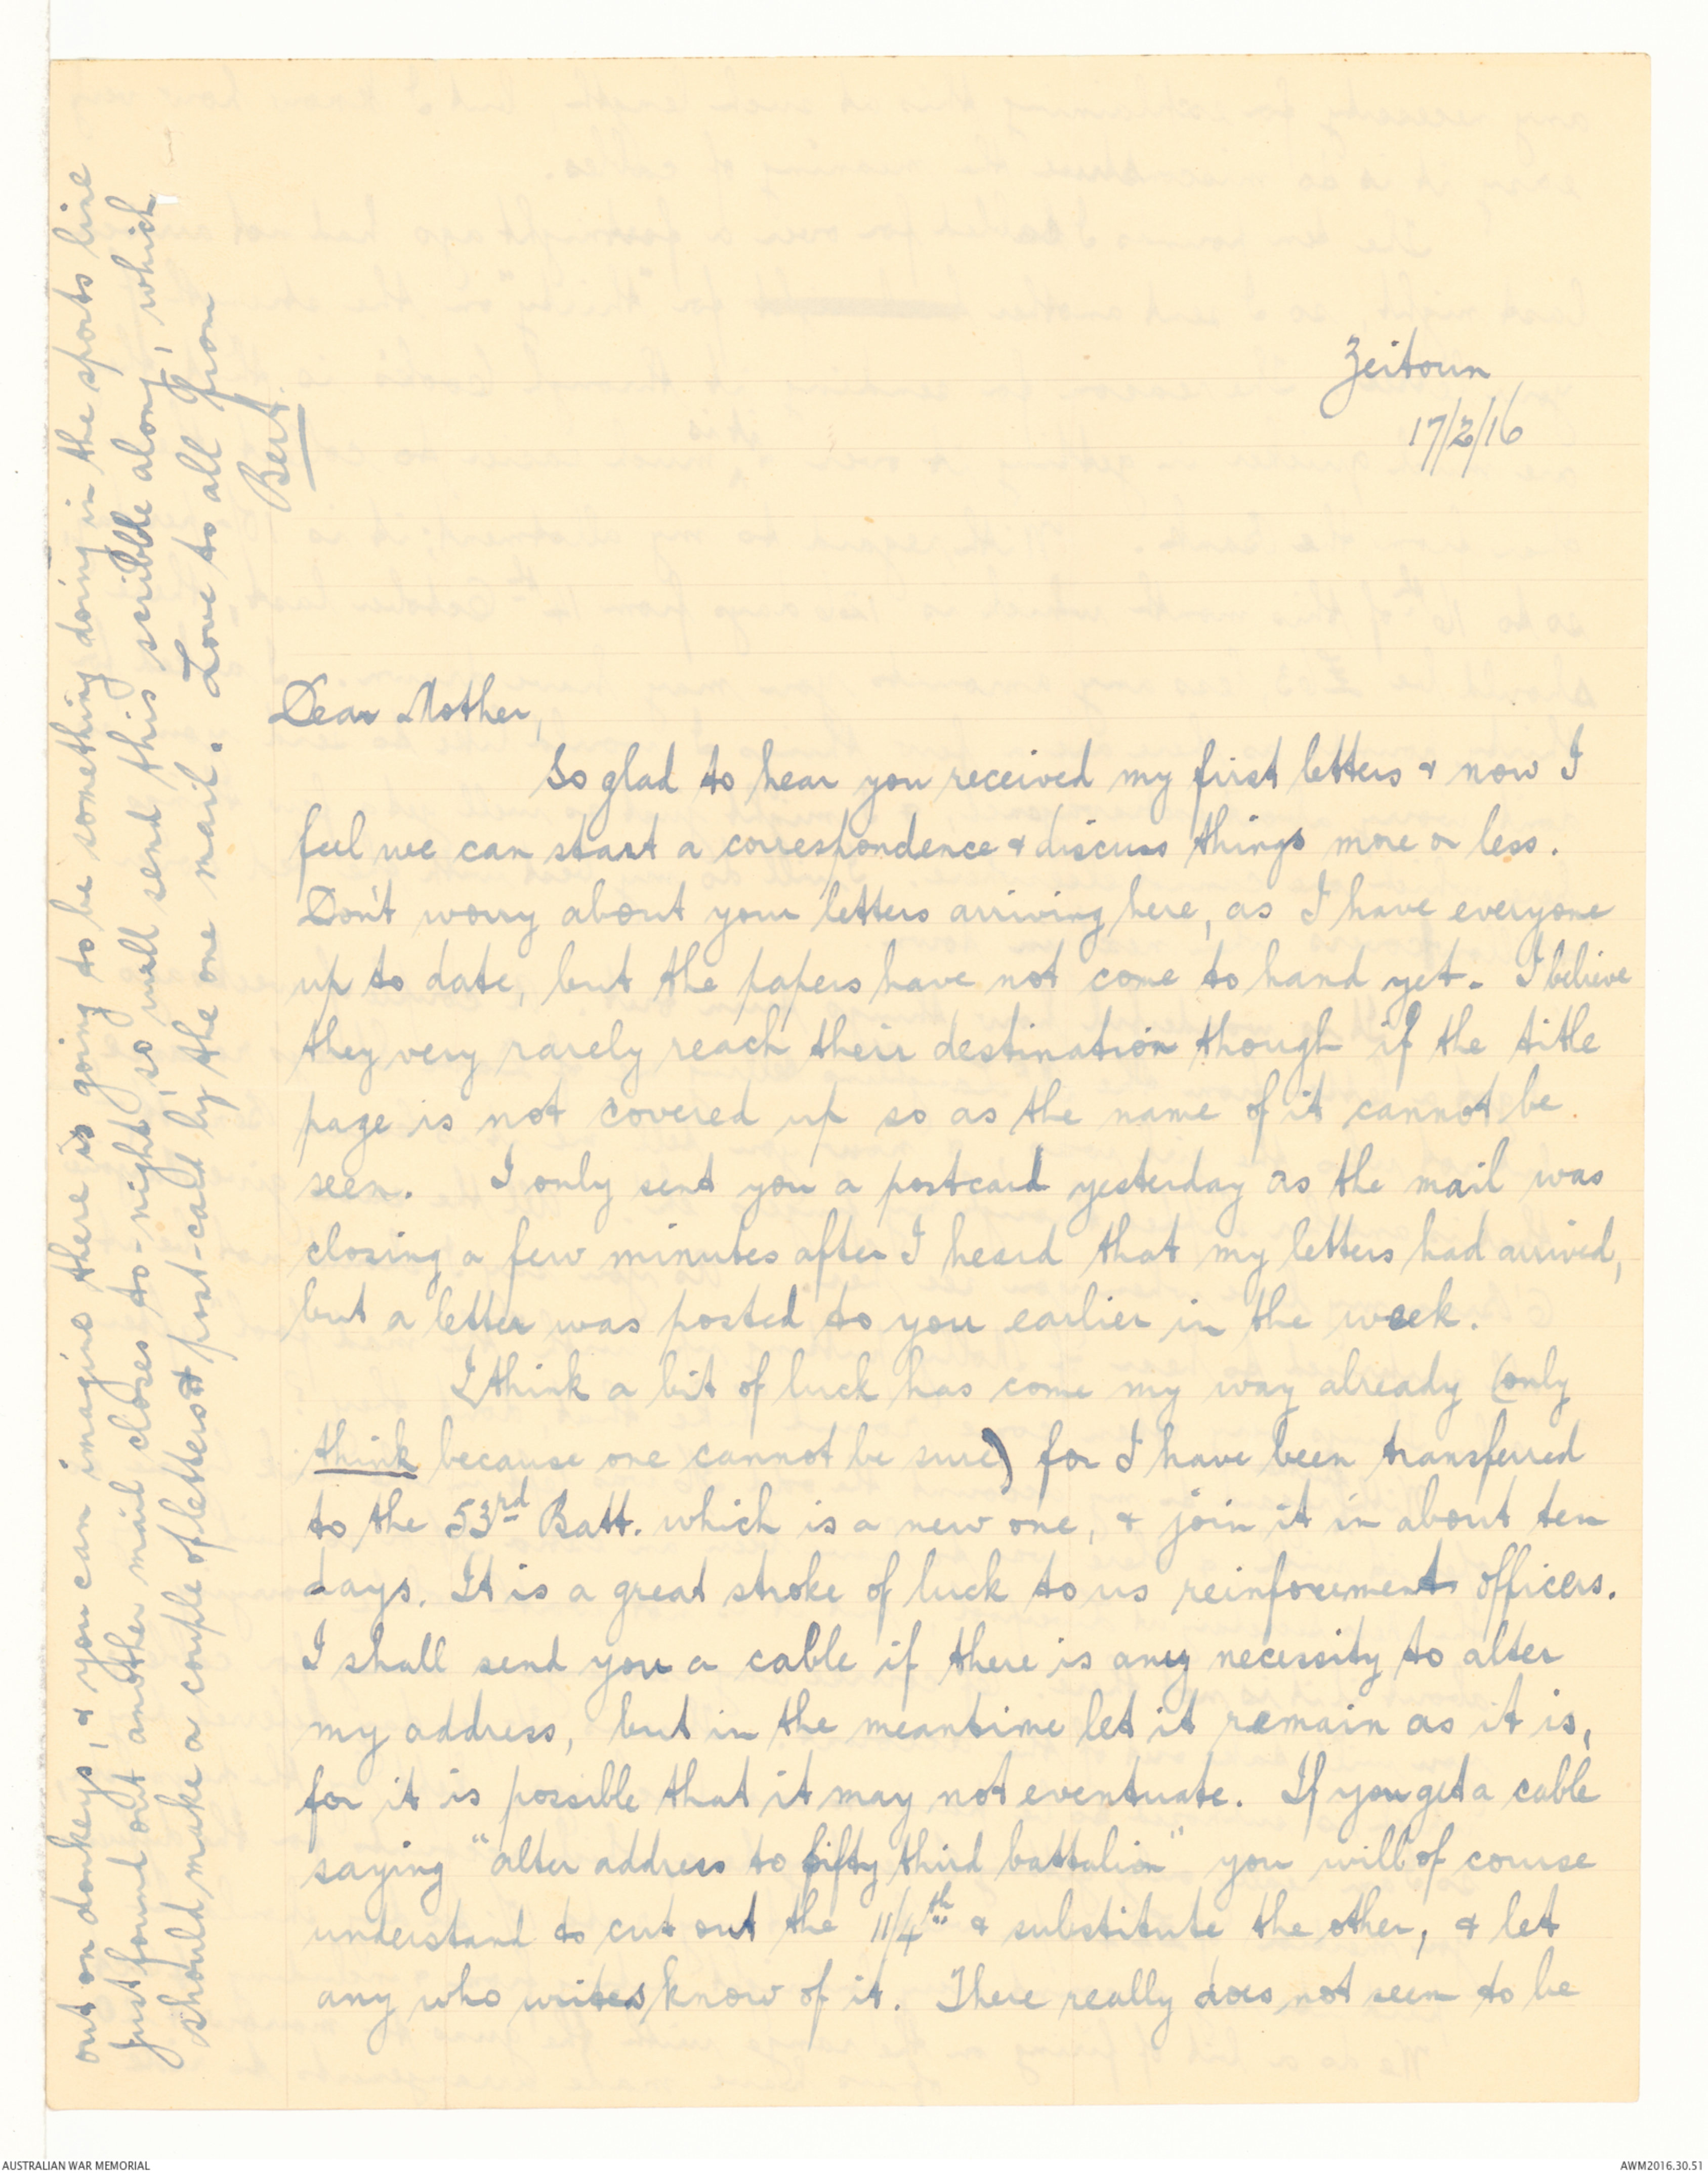 Zeitoun
17/2/16
Dear Mother,
So glad to hear you received my first letters & now I
feel we can start a correspondence & discuss things more or less.
Don't worry about your letters arriving here, as I have everyone
up to date, but the papers have not come to hand yet. I believe
they very rarely reach their destination though if the title
page is not covered up so as the name of it cannot be
seen. I only sent you a postcard yesterday as the mail was
closing a few minutes after I heard that my letters had arrived,
but a letter was posted to you earlier in the week.
I think a bit of luck has come my way already (only
think because one cannot be sure) for I have been transferred
to the 53rd Batt. which is a new one, & join it in about ten
days. It is a great stroke of luck to us reinforcement officers.
I shall send you a cable if there is any necessity to alter
my address, but in the meantime let it remain as it is,
for it is possible that it may not eventuate. If you get a cable
saying "alter address to fifty third battalion" you will of course
understand to cut out the 11/4th & substitute the other, & let
any who writes know of it. There really does not seem to be
out on donkeys, & you can imagine there is going to be something doing in the sports line
Just found out another mail closes to-night, so will send this scribble along, which
should make a couple of letters & post-card by the one mail. Love to all from
Bert.
AUSTRALIAN WAR MEMORIAL
AWM2016.30.51